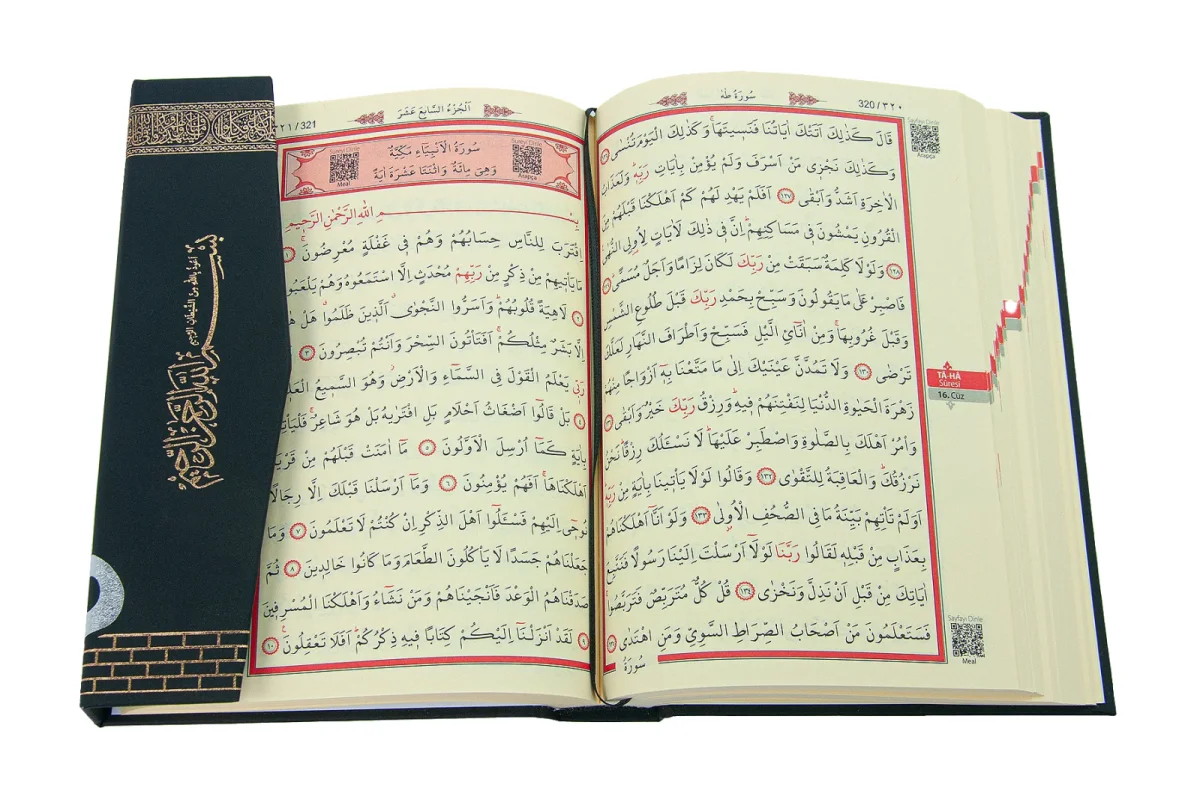 سُورَةُ طٰهٰ
320 / ٣٢٠
قَالَ كَذٰلِكَ اَتَتْكَ اٰيَاتُنَا فَنَسٖيتَهَاۚ وَكَذٰلِكَ الْيَوْمَ تُنْسٰى ١٢٦
وَكَذٰلِكَ نَجْزٖى مَنْ اَسْرَفَ وَلَمْ يُؤْمِنْ بِاٰيَاتِ رَبِّهٖؕ وَلَعَذَابُ
الْاٰخِرَةِ اَشَدُّ وَاَبْقٰى ١٢٧ اَفَلَمْ يَهْدِ لَهُمْ كَمْ اَهْلَكْنَا قَبْلَهُمْ مِنَ
الْقُرُونِ يَمْشُونَ فٖى مَسَاكِنِهِمْؕ اِنَّ فٖى ذٰلِكَ لَاٰيَاتٍ لِاُولِى النُّهٰى
١٢٨ وَلَوْلَا كَلِمَةٌ سَبَقَتْ مِنْ رَبِّكَ لَكَانَ لِزَامًا وَاَجَلٌ مُسَمًّى ١٢٩
فَاصْبِرْ عَلٰى مَا يَقُولُونَ وَسَبِّحْ بِحَمْدِ رَبِّكَ قَبْلَ طُلُوعِ الشَّمْسِ
وَقَبْلَ غُرُوبِهَاۚ وَمِنْ اٰنَآئِ الَّيْلِ فَسَبِّحْ وَاَطْرَافَ النَّهَارِ لَعَلَّكَ
تَرْضٰى ١٣٠ وَلَا تَمُدَّنَّ عَيْنَيْكَ اِلٰى مَا مَتَّعْنَا بِهٖٓ اَزْوَاجًا مِنْهُمْ
زَهْرَةَ الْحَيٰوةِ الدُّنْيَا لِنَفْتِنَهُمْ فٖيهِؕ وَرِزْقُ رَبِّكَ خَيْرٌ وَاَبْقٰى ١٣١
وَأْمُرْ اَهْلَكَ بِالصَّلٰوةِ وَاصْطَبِرْ عَلَيْهَاؕ لَا نَسْـَٔلُكَ رِزْقًاؕ نَحْنُ
نَرْزُقُكَؕ وَالْعَاقِبَةُ لِلتَّقْوٰى ١٣٢ وَقَالُوا لَوْلَا يَأْتٖينَا بِاٰيَةٍ مِنْ رَبِّهٖؕ
اَوَلَمْ تَأْتِهِمْ بَيِّنَةُ مَا فِى الصُّحُفِ الْاُولٰى ١٣٣ وَلَوْ اَنَّٓا اَهْلَكْنَاهُمْ
بِعَذَابٍ مِنْ قَبْلِهٖ لَقَالُوا رَبَّنَا لَوْلَٓا اَرْسَلْتَ اِلَيْنَا رَسُولًا فَنَتَّبِعَ
اٰيَاتِكَ مِنْ قَبْلِ اَنْ نَذِلَّ وَنَخْزٰى ١٣٤ قُلْ كُلٌّ مُتَرَبِّصٌ فَتَرَبَّصُواۚ
فَسَتَعْلَمُونَ مَنْ اَصْحَابُ الصِّرَاطِ السَّوِىِّ وَمَنِ اهْتَدٰى ١٣٥
سُورَةُ
Sayfayı Dinle
Arapça
TÂ-HÂ
Sûresi
16. Cüz
Sayfayı Dinle
Meal
اَلْجُزْءُ السَّابِعَ عَشَرَ
٣٢١ / 321
سُورَةُ الْاَنْبِيَٓاءِ مَكِّيَّةٌ
وَهِىَ مِائَةٌ وَاثْنَتَا عَشْرَةَ اٰيَةً
Sureyi Dinle
Arapça
Sureyi Dinle
Meal
بِسْمِ اللّٰهِ الرَّحْمٰنِ الرَّحٖيمِ
اِقْتَرَبَ لِلنَّاسِ حِسَابُهُمْ وَهُمْ فٖى غَفْلَةٍ مُعْرِضُونَۚ ١
مَا يَأْتٖيهِمْ مِنْ ذِكْرٍ مِنْ رَبِّهِمْ مُحْدَثٍ اِلَّا اسْتَمَعُوهُ وَهُمْ يَلْعَبُونَ
٢ لَاهِيَةً قُلُوبُهُمْؕ وَاَسَرُّوا النَّجْوٰىۗ اَلَّذٖينَ ظَلَمُواۗ هَلْ هٰذَٓا
اِلَّا بَشَرٌ مِثْلُكُمْۚ اَفَتَأْتُونَ السِّحْرَ وَاَنْتُمْ تُبْصِرُونَ ٣
رَبّٖى يَعْلَمُ الْقَوْلَ فِى السَّمَٓاءِ وَالْاَرْضِؗ وَهُوَ السَّمٖيعُ الْعَلٖيمُ
٤ بَلْ قَالُٓوا اَضْغَاثُ اَحْلَامٍ بَلِ افْتَرٰيهُ بَلْ هُوَ شَاعِرٌۚ فَلْيَأْتِنَا
بِاٰيَةٍ كَمَٓا اُرْسِلَ الْاَوَّلُونَ ٥ مَٓا اٰمَنَتْ قَبْلَهُمْ مِنْ قَرْيَةٍ
اَهْلَكْنَاهَاۚ اَفَهُمْ يُؤْمِنُونَ ٦ وَمَٓا اَرْسَلْنَا قَبْلَكَ اِلَّا رِجَالًا
نُوحٖٓى اِلَيْهِمْ فَسْـَٔلُٓوا اَهْلَ الذِّكْرِ اِنْ كُنْتُمْ لَا تَعْلَمُونَ ٧ وَمَا
جَعَلْنَاهُمْ جَسَدًا لَا يَأْكُلُونَ الطَّعَامَ وَمَا كَانُوا خَالِدٖينَ ٨ ثُمَّ
صَدَقْنَاهُمُ الْوَعْدَ فَاَنْجَيْنَاهُمْ وَمَنْ نَشَٓاءُ وَاَهْلَكْنَا الْمُسْرِفٖينَ
٩ لَقَدْ اَنْزَلْنَٓا اِلَيْكُمْ كِتَابًا فٖيهِ ذِكْرُكُمْؕ اَفَلَا تَعْقِلُونَۚ ١٠
اعوذ بالله من الشيطان الرجيم
بسم الله الرحمن الرحيم